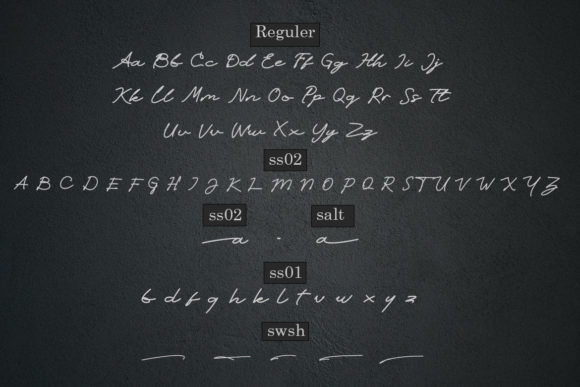 Reguler
Aa Bb Cc Dd Ee Ff Gg Hh Ii Jj
Kk Ll Mm Nn Oo Pp Qq Rr Ss Tt
Uu Vv Ww Xx Yy Zz
ss02
A B C D E F G H I J K L M N O P Q R S T U V W X Y Z
ss02 salt
a - a
ss01
b d f g h k l t v w x y z
swsh